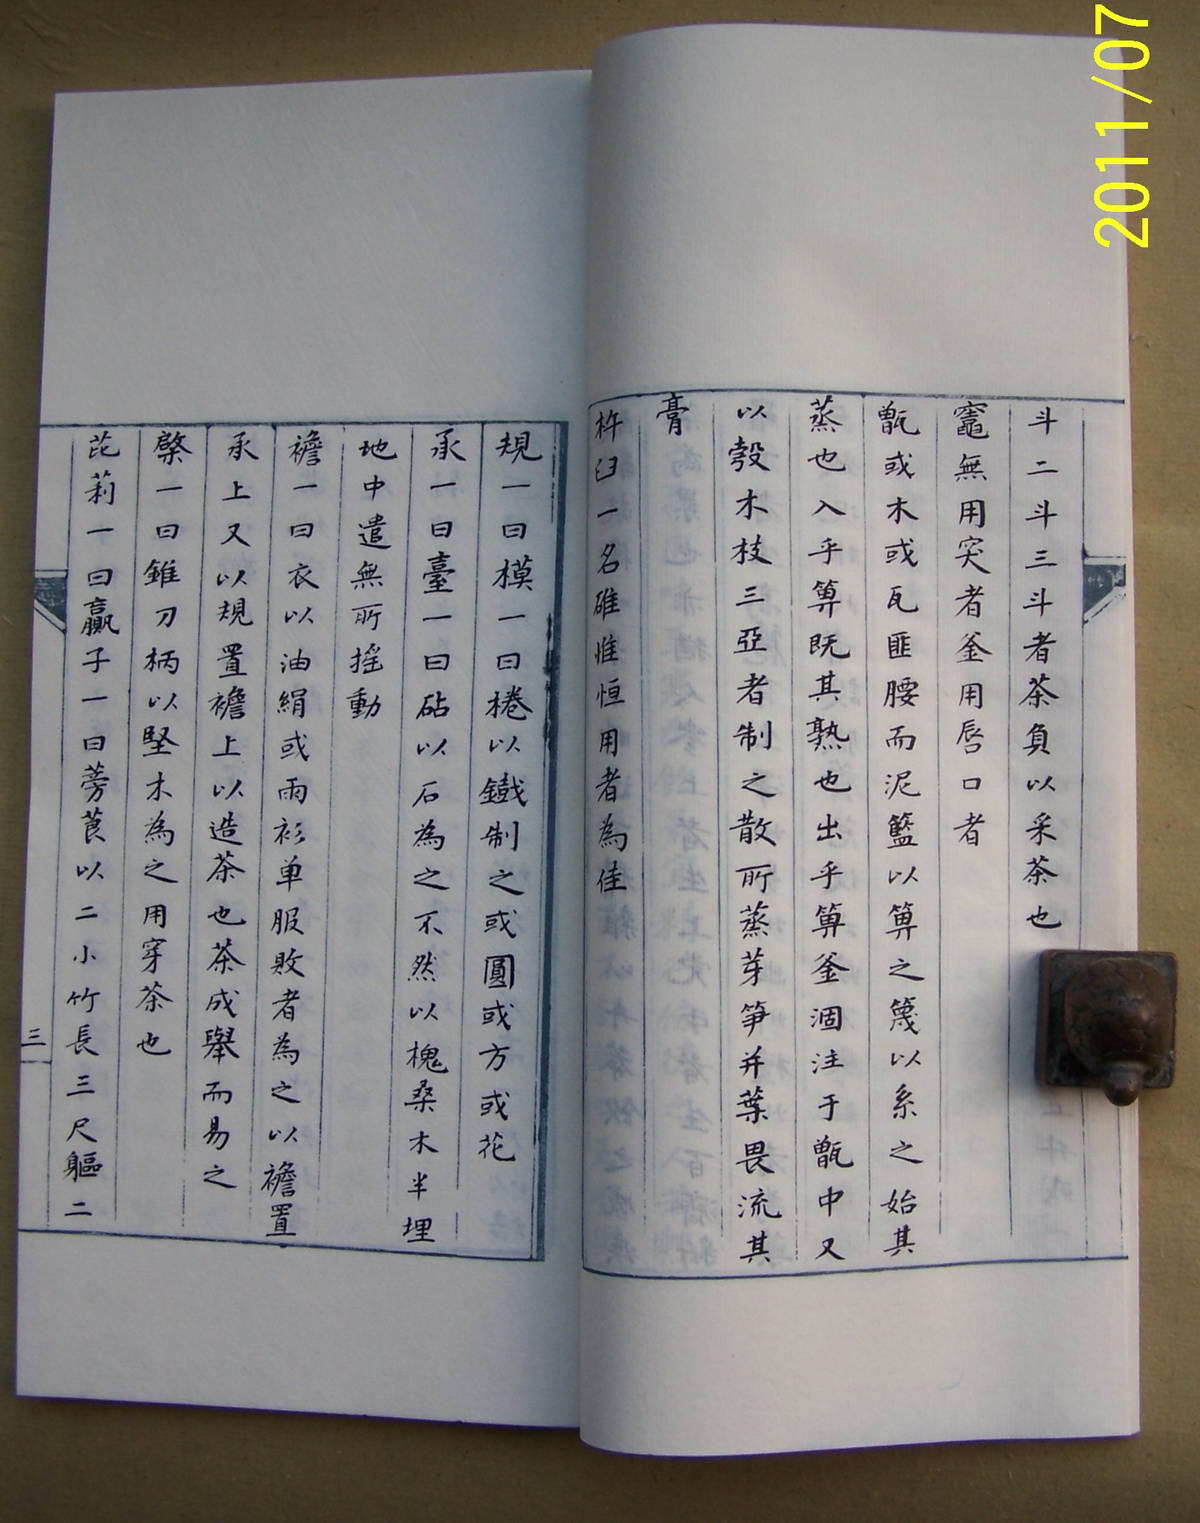 斗二斗三斗者茶負以采茶也
竈無用突者釜用唇口者
甑或木或瓦匪腰而泥籃以箅之篾以系之始其
蒸也入乎箅既其熟也出乎箅釜涸注于甑中又
以榖木枝三亞者制之散所蒸芽笋并葉畏流其
膏
杵臼一名碓惟恒用者為佳
規一曰模一曰棬以鐵制之或圓或方或花
承一曰臺一曰砧以石為之不然以槐桑木半埋
地中遣無所搖動
襜一曰衣以油絹或雨衫单服敗者為之以襜置
承上又以規置襜上以造茶也茶成舉而易之
棨一曰錐刀柄以堅木為之用穿茶也
芘莉一曰贏子一曰蒡莨以二小竹長三尺軀二
三
2011/07